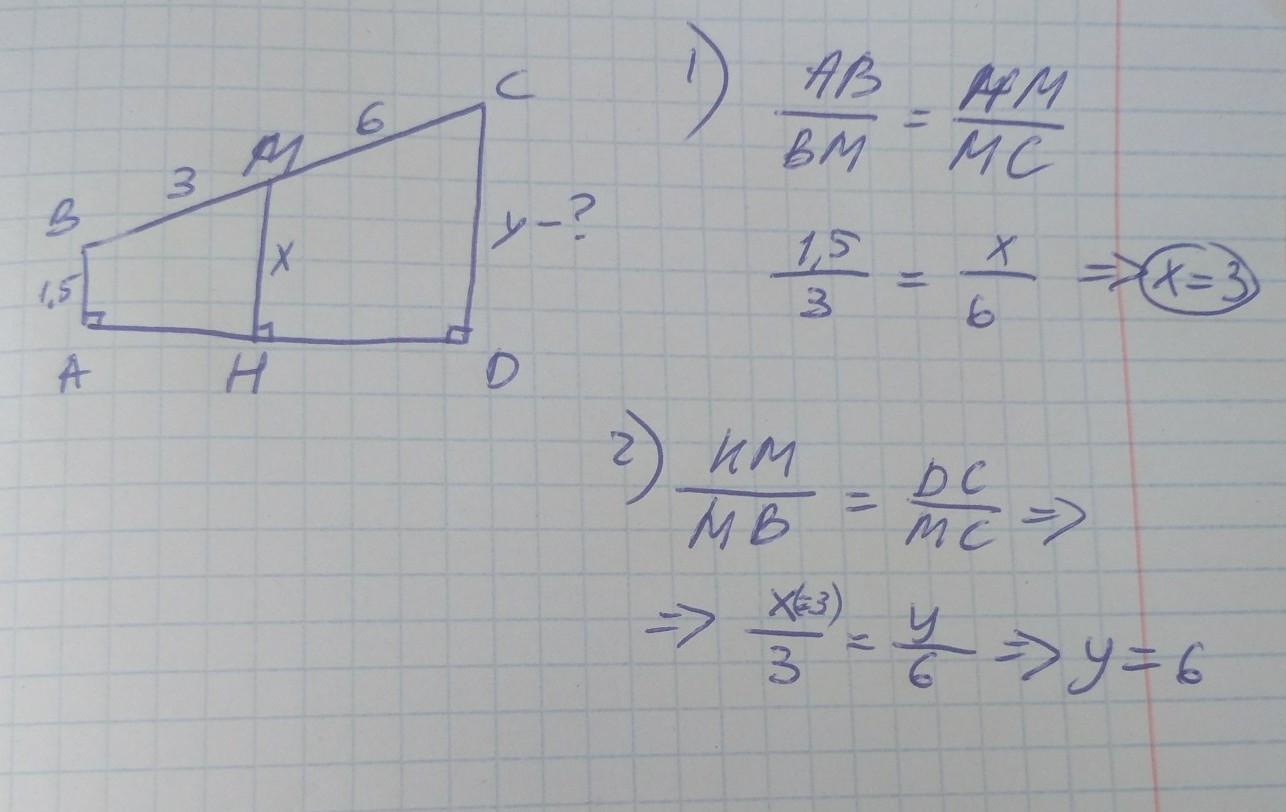 C
6
M
3
B
y-?
x
1,5
A
H
D
1) AB/BM = HM/MC
1,5/3 = x/6 => x=3
2) HM/MB = DC/MC =>
=> x(=3)/3 = y/6 => y=6